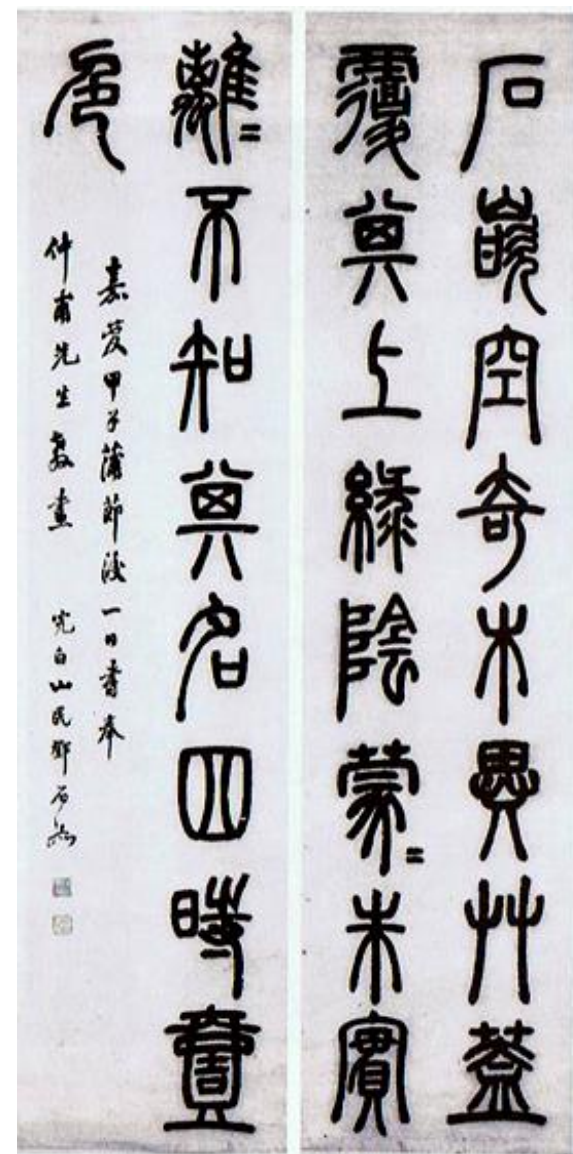 石嵌空奇木異艸蓋
覆其上綠陰蒙〻朱實
離〻不知其名四時壹
色
嘉慶甲子蒲節後一日書奉
仲甫先生教 完白山民鄧石如